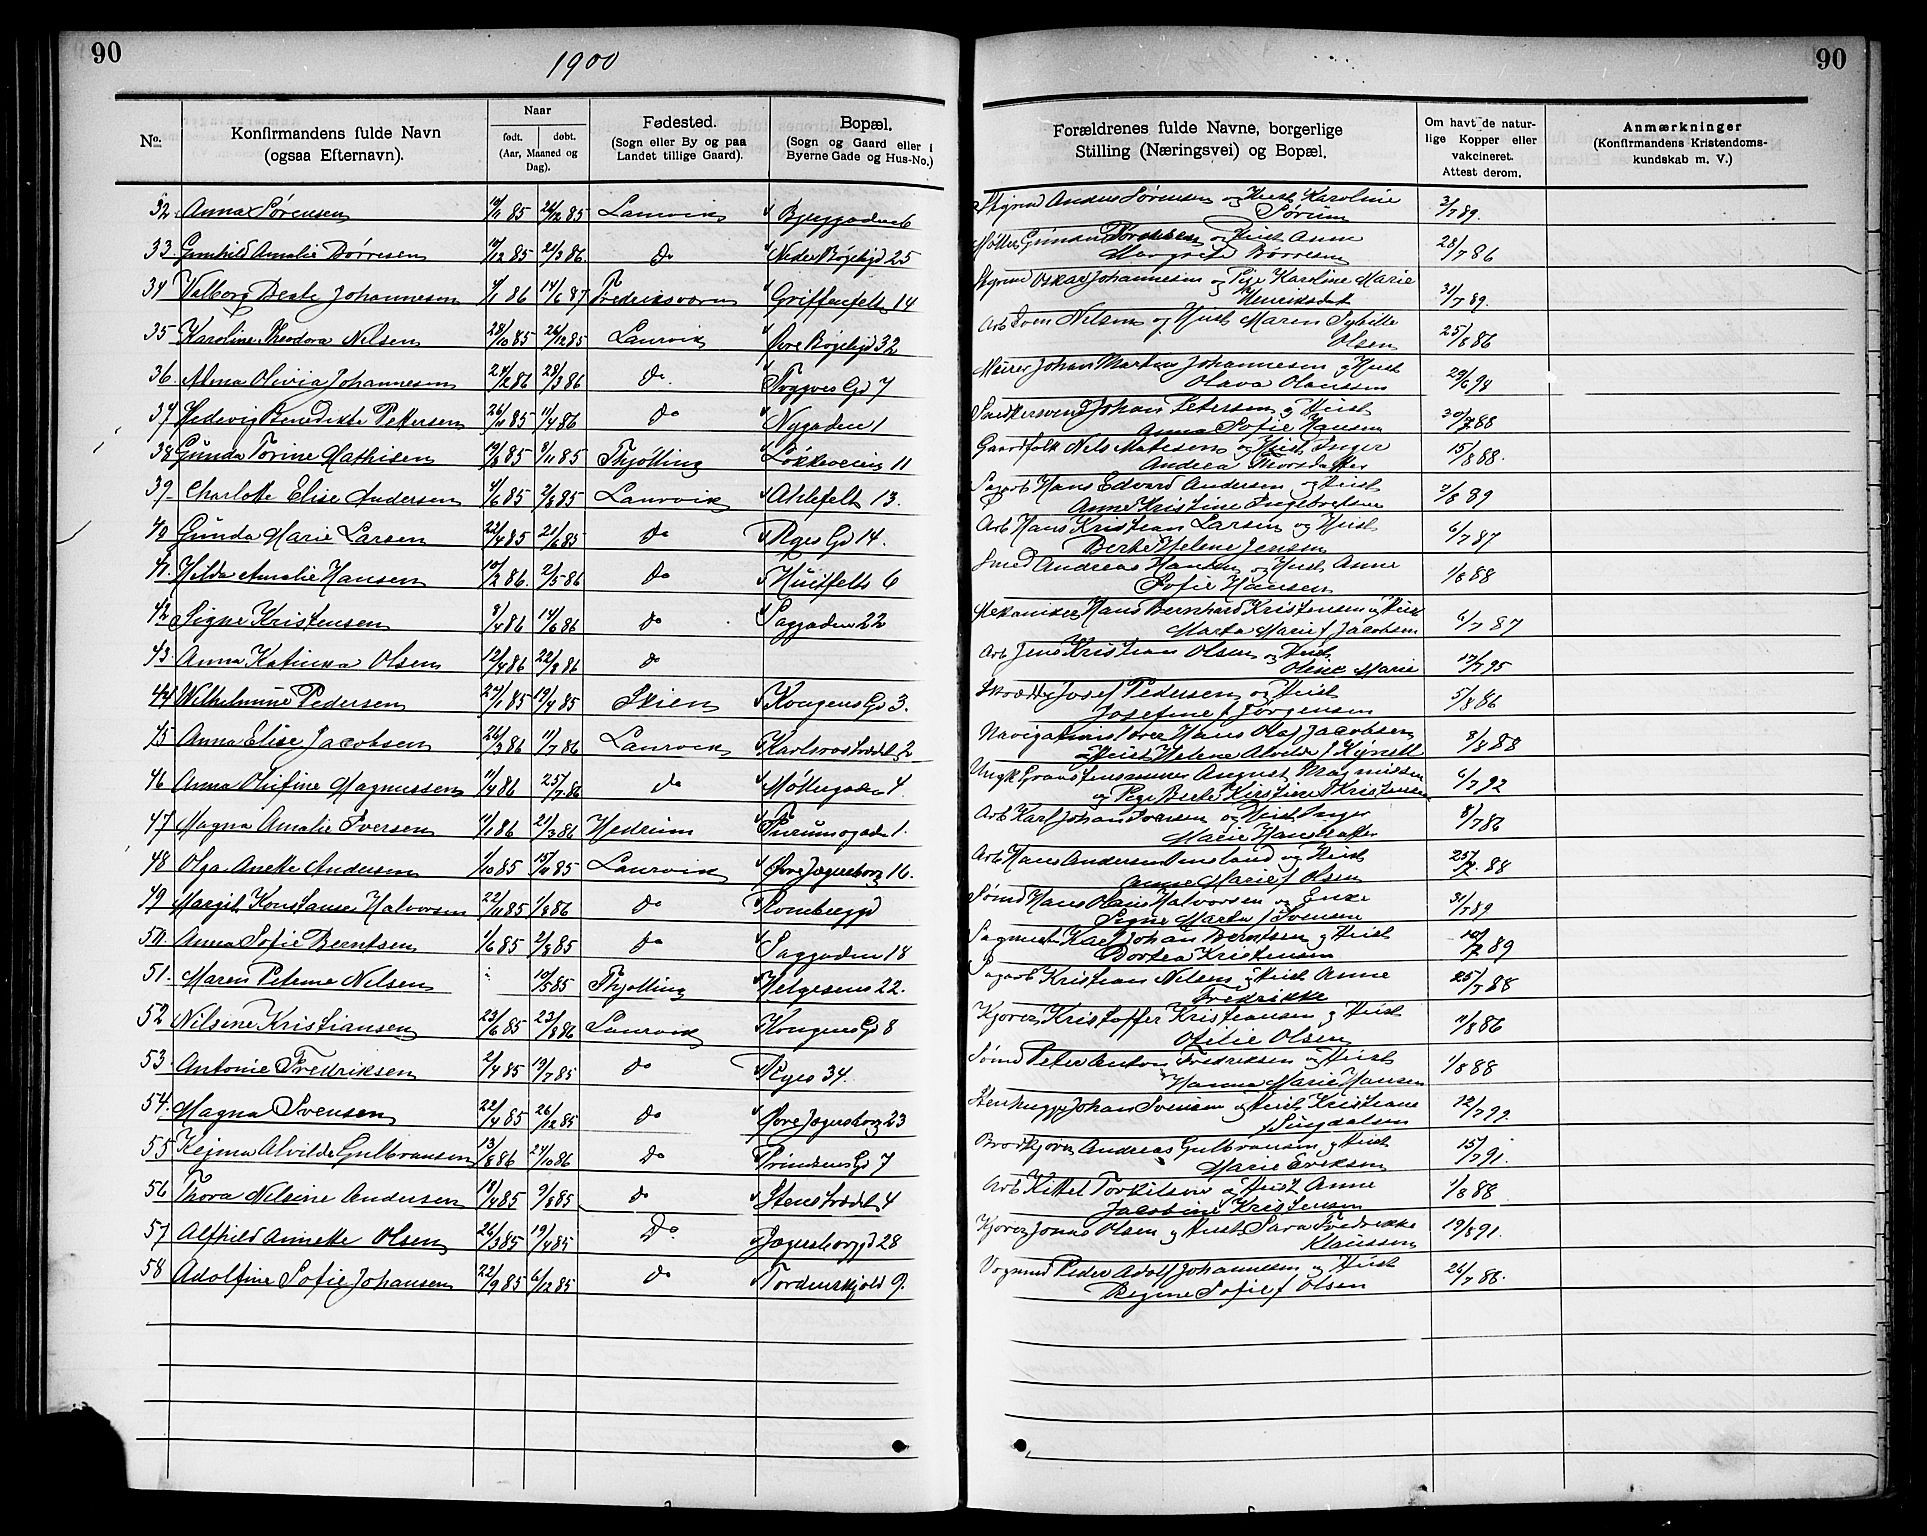 90
1900
90
No.
Konfirmandens fulde Navn
(ogsaa Efternavn).
Naar
født. døbt.
(Aar, Maaned og Dag).
Fødested.
(Sogn eller By og paa
Landet tillige Gaard).
Bopæl.
(Sogn og Gaard eller i
Byerne Gade og Hus-No.)
Forældrenes fulde Navne, borgerlige
Stilling (Næringsvei) og Bopæl.
Om havt de natur-
lige Kopper eller
vakcineret.
Attest derom.
Anmærkninger
(Konfirmandens Kristendoms-
kundskab m. V.)
32. Anna Sørensen 85 26/12 85 Laurvik Anders Sørensen og Hust Karoline 3/7 89.
Sørum
33. Gunhild Amalie Børresen 10/12 85 21/3 86 do Nedre Bøjelgd 25 og Hust Anne 28/7 86
Margrete Børresen
34 Valborg Beate Johannesen 4/1 86 14/6 87 Fredriksværn Griffenfelts 14 Oskar Johannesen og Pige Karoline Marie 31/7 89.
Henriksdat
35 Karoline Theodora Nelsen 28/10 85 26/12 85 Laurvik Øvre Bøjelgd 32 Arb Sven Nelsen og Hust Maren Sybille 25/8 86
Olsen
36. Alma Olivia Johannesen 24/2 86 28/3 86 do. Trygves Gd 7 Murer Johan Martin Johannesen og Hust 29/6 98
Olava Olaussen
37 Hedevig Benedikte Pettersen 85 11/4 86 do Nygaden 1 Snedkersvend Johan Petersen og Hust 30/7 88
Anna Sofie Hansen
38 Gunda Torine Mathisen 85 8/11 85 Thjølling Løkkeveien 11 Gaardfolk Nels Matisen og Hust Inger 15/8 88.
Andrea Thorsdatter
39 Charlotte Elise Andersen 4/6 85 2/8 85 Laurvik Ahlefelt 13. Sagarb Hans Edvard Andersen og Hust 89
Anne Kristine Ingebretsen
40 Gunda Marie Larsen 22/4 85 21/6 85 do Reges Gd 14. Arb Hans Kristian Larsen og Hust 6/7 87
Berte Helene Jenssen
41. Hilda Amalie Hansen 10/2 86. 2/5 86 do Huitfelts 6 Smed Andreas Hansen og Hust Anne 1/8 88
Sofie Hansen
42 Signe Kristensen 8/4 86 14/6 86 do Saggaden 22 Mekaniker Hans Bernhard Kristensen og Hust 6/7 87
Marta Marie f Jacobsen
43. Anna Katinka Olsen 12/4 86 22/8 86 do Arb Jens Kristian Olsen og Hust 17/7 95
Olise Marie
44 Wilhelmine Pedersen 27/1 85 19/4 85 Skien Kongens Gd 3. Skrædder Josef Pedersen og Hust 5/8 86
Josefine f Jørgensen
45 Anna Elise Jacobsen 26/3 86 11/7 86 Laurvik Karlsrostrædet 2 Navigationslærer Hans Olaf Jacobsen 8/8 88
og Hust Helene Alvilde f
46 Anna Olufine Magnussen 11/4 86 25/7 86 do Møllegaden 4. Ungk August Magnussen 6/7 92
og Pige Berte Kirstine Kristensen
47 Magna Amalie Iversen 11/1 86 21/3 86 Hedrum Furumogaden 1. Arb Karl Johan Iversen og Hust Inger 8/7 86
Marie Hansdatter
48 Olga Anette Andersen 1/10 85 85 Laurvik Øvre Jegersborg 16. Arb Hans Andersen og Hust 25/7 88
Anne Marie f Olsen
49 Margit Konstanse Halvorsen 22/11 85 1/8 86 do Sømd Hans Olaus Halvorsen og Enke 31/7 89
Signe Marta f Svensen
50. Anna Sofie Berntsen 1/6 85 2/8 85 do Saggaden 18 Karl Johan Berntsen og Hust 89
Dortea Kristensen
51. Maren Peterne Nelsen 10/5 85 Thjølling Helgesens 22. Sagarb Kristian Nelsen og Hust Anne 25/7 88
Fredrikke
52 Nilsine Kristiansen 23/6 85 23/8 86 Laurvik Kongens Gd 8 Kjører Kristoffer Kristiansen og Hust 11/8 86
Otilie Olsen
53. Antonie Fredriksen 2/4 85 19/7 85 do Reges 34. Sømd Peter Anton Fredriksen og Hust 1/8 88
Hanna Marie Hansen
54. Magna Svensen 22/4 85 26/12 85 do Øvre Jegersborg 23 Stenhugger Johan Svensen og Hust Kristiane 12/7 92.
f Lingdalsen
55 Rejma Alvilde Gulbransen 13/8 86 24/10 86 do Prindsens Gd 7 Brødkjører Andreas Gulbransen og Hust 15/7 91.
Marie Eriksen
56 Thora Nelsine Andersen 18/4 85 9/8 85 do Stenstrædet 4 Arb Kittel Torkilsen og Hust Anne 1/8 88
Jacobine Kristensen
57 Alfhild Annette Olsen 26/3 85 19/4 85 Do Jegersborggd 28 Kjører Jonas Olsen og Hust Sara Fredrikke 19/8 91.
Klaussen
58. Adolfine Sofie Johansen 22/9 85 6/12 85 do Tordenskjold 9. Vognmd Peder Adolf Johannesen og Hust 26/7 86.
Regine Sofie f Olsen